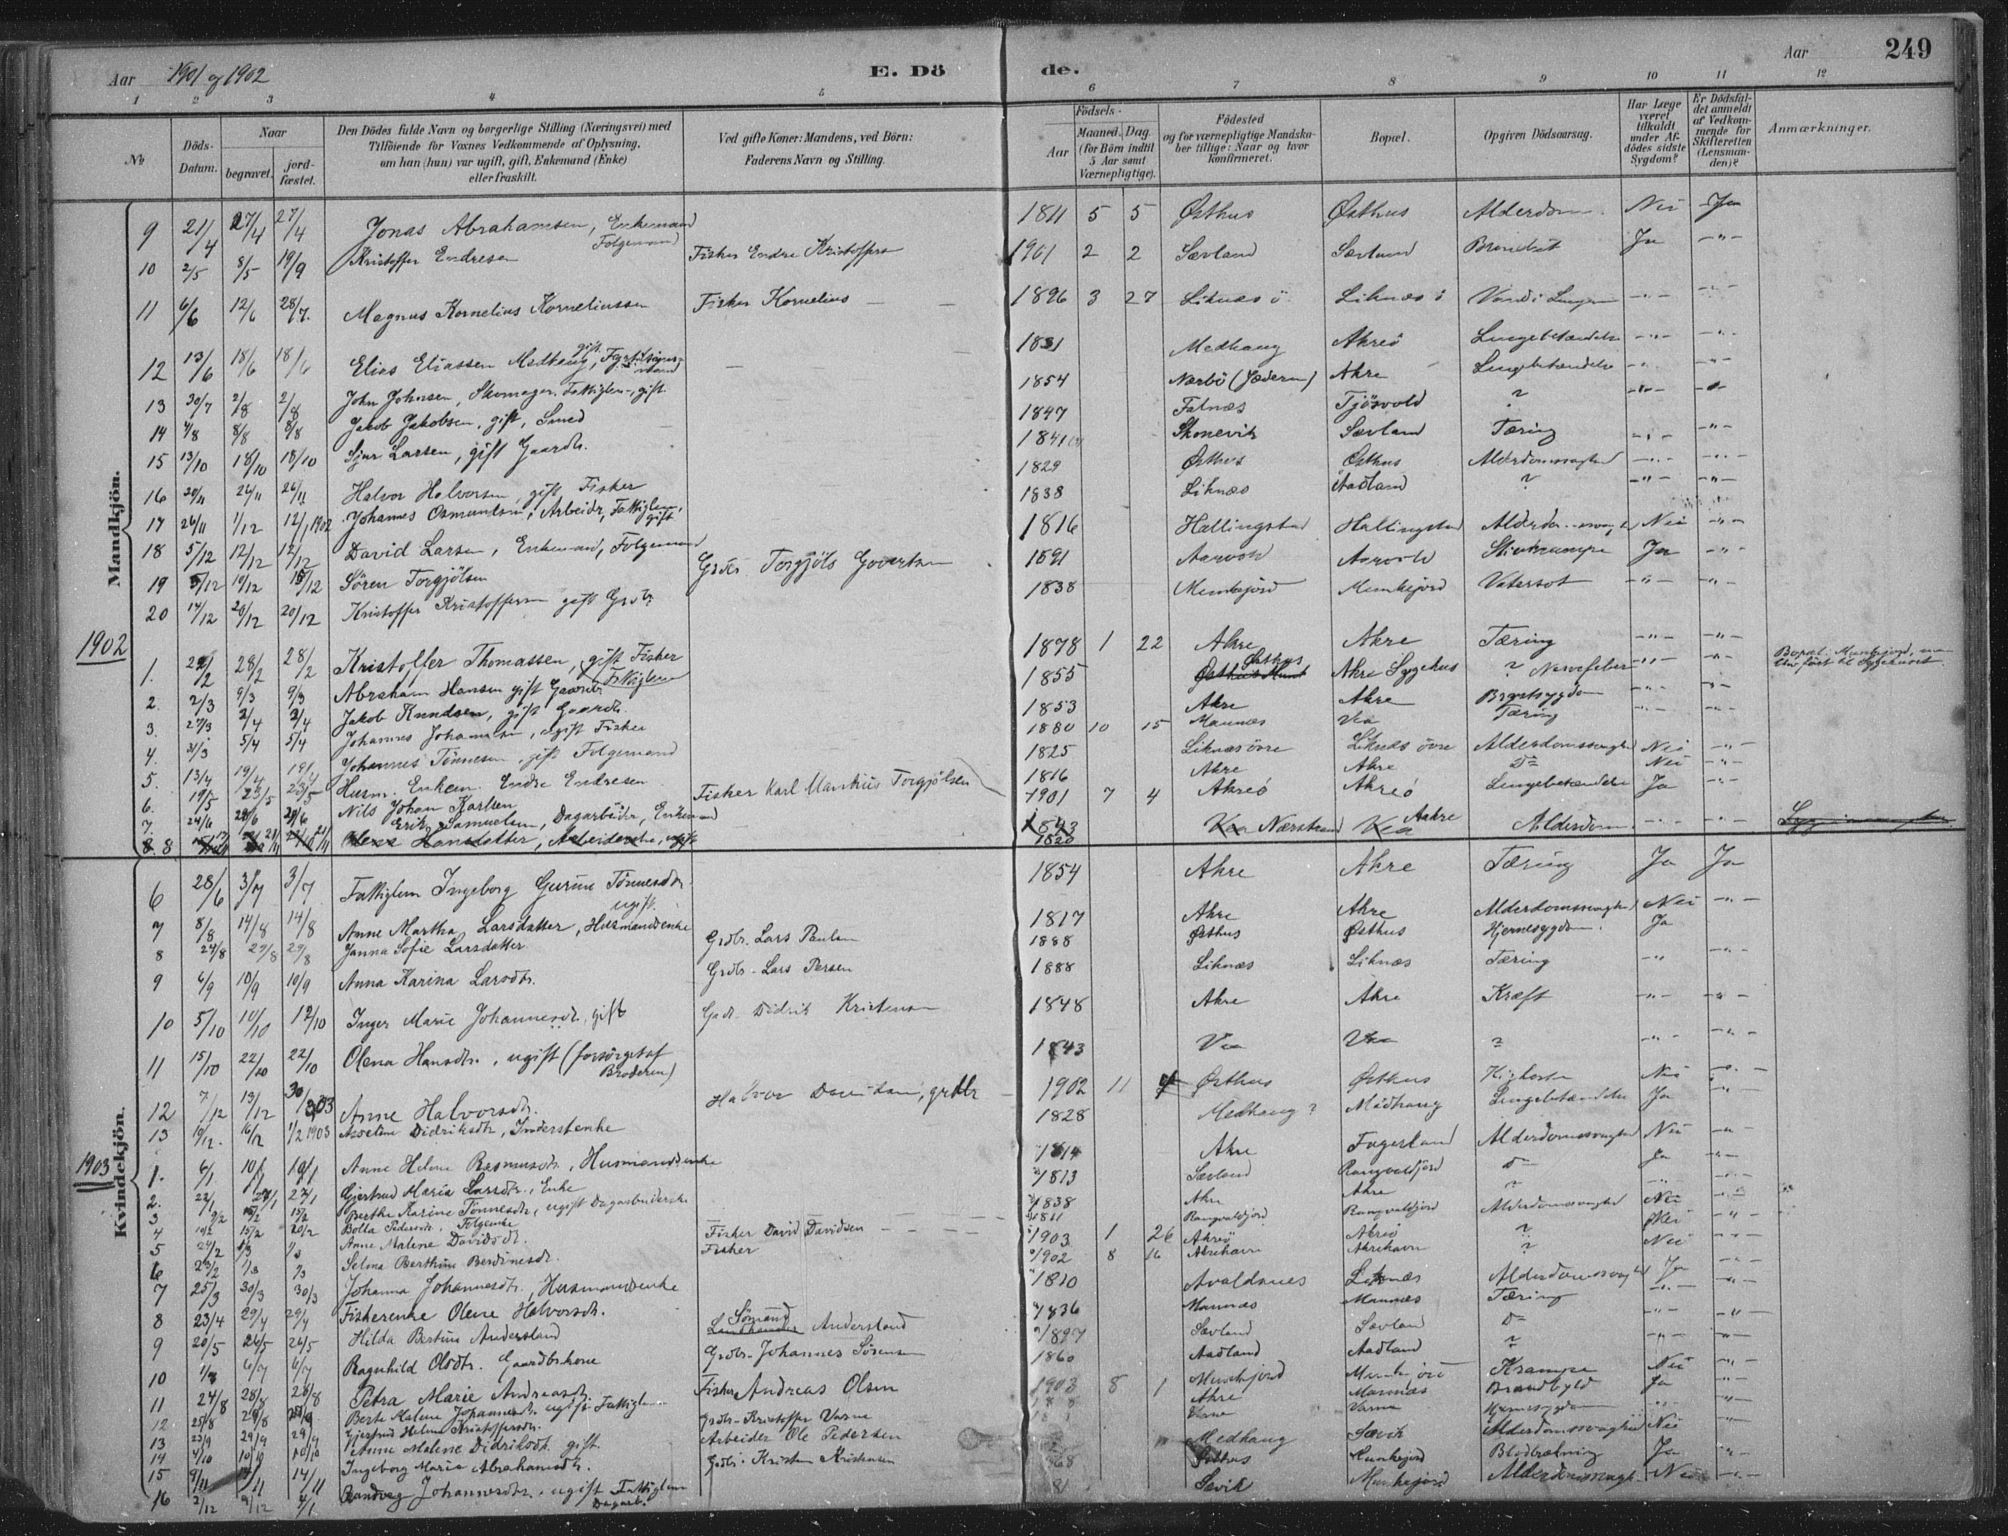 Aar 1901 og 1902 E. Dö de. Aar 249
1 2 3 4 5 6 7 8 9 10 11 12
№ Döds-Datum. Naar begravet. jord-fæstet. Den Dödes fulde Navn og borgerlige Stilling (Næringsvei) med Tilföiende for Voxnes Vedkommende af Oplysning, om han (hun) var ugift, gift, Enkemand (Enke) eller fraskilt. Ved gifte Koner: Mandens, ved Börn: Faderens Navn og Stilling. Födsels- Aar Maaned. Dag. (for Börn indtil 5 Aar samt Værnepligtige). Födested og for værnepligtige Mandskaber tillige: Naar og hvor konfirmeret. Bopæl. Opgiven Dödsaarsag. Har Læge været tilkaldt under Afdödes sidste Sygdom? Er Dödsfaldet anmeldt af Vedkommende for Skifteretten (Lensmanden)? Anmærkninger.
Mandkjön.
9 21/4 27/4 27/4 Jonas Abrahamsen, Enkemand Folgemand 1811 5 5 Østhus Østhus Alderdom Nei Ja
10 2/5 8/5 19/9 Kristoffer Endresen Fisker Endre Kristoffers 1901 2 2 Sævland Sævland Ja -"-
11 6/6 12/6 28/7. Magnus Kornelius Korneliussen Fisker Kornelius 1896 3 27 Liknæs ö Liknæs ö -"- -"-
12 13/6 18/6 18/6 Elias Eliassen Medhaug, gift 1831 Medhaug Akreö Lungebetændelse -"- -"-
13 30/7 2/8 2/8 John Johnsen, Skomager. Fattiglem, gift 1854 Nærbö (Jæderen) Akre Lungebetændelse -"- -"-
14 4/8 8/8 8/8 Jakob Jakobsen, gift, Smed 1847 Falnæs Tjösvold ? -"- -"-
15 13/10 18/10 18/10 Sjur Larsen, gift Gaardb. 1841 Skonevik Sævland Tæring -"- -"-
16 20/11 26/11 26/11 Halvor Halvorsen, gift Fisker 1829 Østhus Østhus Alderdomssvaghed -"- -"-
17 26/11 1/12 12/1 1902 Johannes Osmundsen, Arbeider, Fattiglem, gift 1838 Liknæs Aadland ? -"- -"-
18 5/12 12/12 12/12 David Larsen, Enkemand, Folgemand 1816 Hallingstad Hallingstad Nei -"-
19 5/12 10/12 15/12 Sören Torgjölsen Grdbr Torgjöls Govertsen 1891 Aarvold Aarvold Stivkrampe Ja -"-
20 14/12 20/12 20/12 Kristoffer Kristoffersen gift Grdbr. 1838 Munkejord Munkejord Vatersot -"- -"-
1902
1. 22/2 28/2 28/2 Kristoffer Thomassen, gift Fisker (Fattiglem 1878 1 22 Akre Akre Tæring -"- -"-
2. 2/3 9/3 9/3 Abraham Hansen gift Gaardb. 1855 Østhus Akre Sygehus ? Nervefeber -"- -"- Bopæl: Munkejord, men blev ført til Sygehuset.
3. 27/3 2/4 2/4 Jakob Knudsen, gift Gaardb. 1853 Akre Akre Brystsygdom -"- -"-
4. 31/3 5/4 5/4 Johannes Johannesen, ugift Fisker 1880 10 15 Mannæs Vea Tæring
5. 13/4 19/4 19/4 Johannes Tönnesen gift Folgemand 1825 Liknæs övre Liknæs övre Alderdomssvaghed Nei -"-
6. 19/5 23/5 23/5 Husm. Enkem. Endre Endresen 1816 Akre Akre Do Nei -"-
7. 24/6 29/6 29/6 Nils Johan Karlsen Fisker Karl Mankius Torgjölsen 1901 7 4 Akreö Akreö Lungebetændelse Ja -"-
8. 8 Erik Samuelsen, Dagarbeider, Enkemand 1820 Nærstrand Aakre Alderdom -"- -"-
Olene Hansdatter, Arbeiderske, ugift 1843 Vea Vea
Kvindekjön.
6 28/6 3/7 3/7 Fattiglem Ingeborg Gurine Tönnesdtr. ugift. 1854 Akre Akre Tæring Ja Ja
7 8/8 14/8 14/8 Anne Martha Larsdatter, Husmandsenke 1817 Akre Akre Alderdomssvaghed Nei -"-
8 24/8 29/8 29/8 Janna Sofie Larsdatter Grdbr. Lars Paulsen 1888 Østhus Østhus Hjernesygdom. Ja
9 6/9 10/9 10/9 Anna Karina Larsdtr. Grdbr. Lars Persen 1888 Liknæs Liknæs Tæring -"- -"-
10 5/10 10/10 12/10 Inger Marie Johannesdtr. gift Gadr. Didrik Kristensen 1848 Akre Akre Kræft -"- -"-
11 15/10 22/10 22/10 Olena Hansdtr., ugift (forsörget af Broderen) 1843 Vea Vea ? -"-
12 7/12 13/12 30/1 1903 Anne Halvorsdtr. Halvor Danielsen, grdbr 1902 11 Østhus Østhus Kighoste Nei -"-
13 10/12. 16/12 1/2 1903 Aseline Didriksdtr, Inderstenke 1828 Medhaug? Mædhaug Lungebetændelse Ja -"-
1903
1. 6/1 10/1 10/1 Anne Helene Rasmusdtr., Husmandsenke 1814 Akre Fagerland Alderdomssvaghed Nei -"-
2. 22/1 27/1 27/1 Gjertrud Maria Larsdtr., Enke 1813 Sævland Rangvaldjord Do Ja -"-
3 9/2 15/2 15/2 Berthe Karine Tönnesdtr, ugift Dagarbeiderske 1838 Akre Akre ? -"-
4 10/2 15/2 20/2 Bolla Pedersdtr. Folgenke 1811 Rangvaldjord Rangvaldjord Alderdomssvaghed Nei -"-
5 24/2 1/3 1/3 Anne Malene Davidsdtr. Fisker David Davidsen 1903 1 26 Akreö Akreö ? Nei -"-
6 23/2 1/3 1/3 Selma Berthine Berdinesdtr. Fisker 1902 8 16 Akrehavn Akrehavn ? Nei
7 25/3 30/3 30/3 Johanna Johannesdtr, Husmandsenke 1810 Avaldsnes Liknæs Alderdomssvaghed Ja
8 23/4 29/4 29/4 Fisherenke Olene Halvorsdtr. 1836 Mannæs Mannæs Tæring -"-
9 20/5 26/5 26/5 Hilda Bertine Andersland Sömand Andersland 1897 Sævland Sævland Do -"- -"-
10 1/7 6/7 6/7 Ragnhild Olsdtr. Gaardbrkone Grdbr. Johannes Sörensen 1860 Aadland Aadland ? -"- -"-
11 24/8 28/8 28/8 Petra Marie Andreasdtr. Fisker Andreas Olsen 1903 8 1 Munkjord Krampe Nei -"-
12 25/8 29/8 Berte Malene Johannesdtr. ugift Fattiglem Akre Mannæs Ja
13 23/9 29/9 29/9 Gjertrud Helene Kristoffersdtr. Grdbr. Kristoffer Varne Varne Varne Hjernesygdom
14 4/10 10/10 10/10 Anne Malene Didriksdtr gift. Arbeider Ole Pedersen Medhaug Sævik Alderdomssvaghed Nei
15 9/11 14/11 14/11 Ingeborg Marie Abrahamsdtr. Grdbr. Kristen Kristensen 68 Østhus Munkejord Ja
16 2/12 9/12 4/1 Randveg Johannesdtr. ugift Fattiglem Dagarb. 81 Sævik Munkejord Alderdomssvagh. Nei